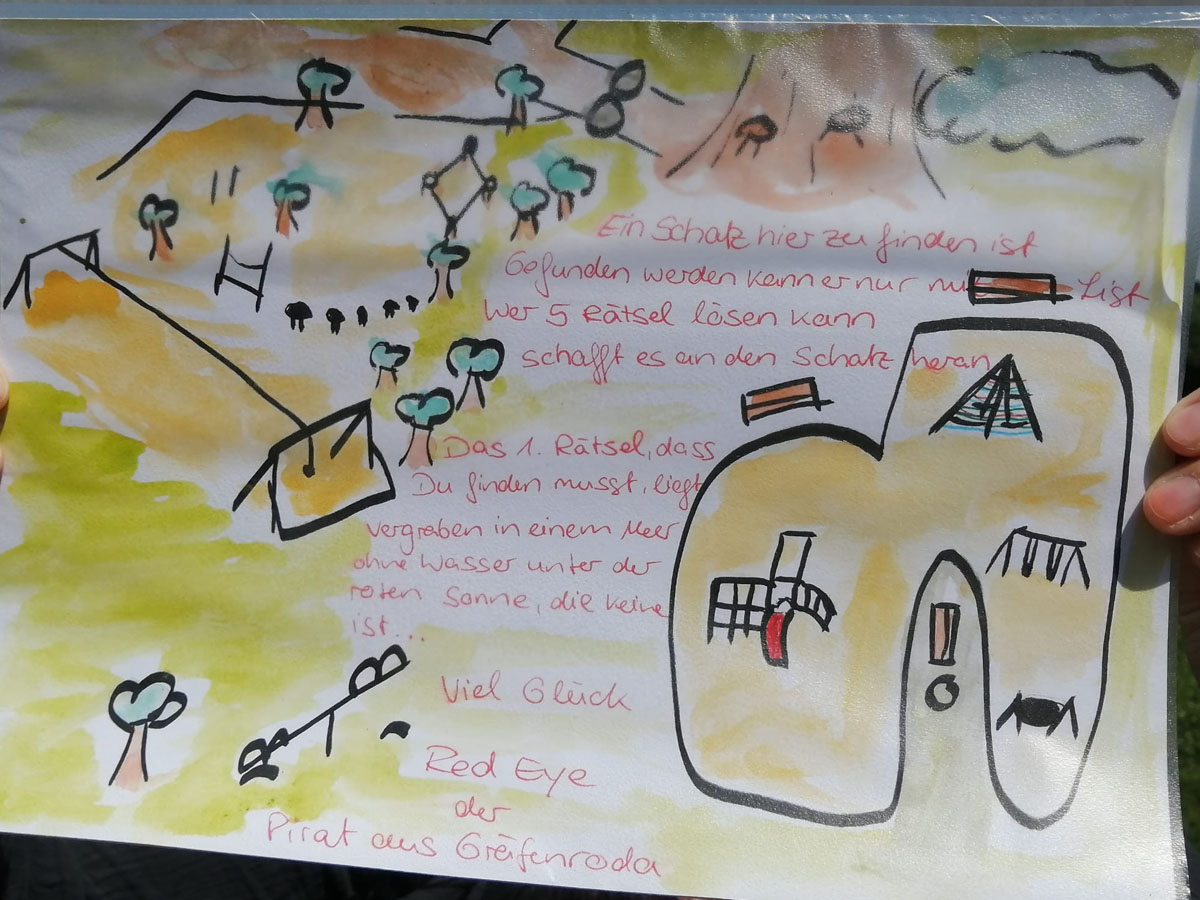 Ein Schatz hier zu finden ist
Gefunden werden kann er nur List
Wer 5 Rätsel lösen kann
schafft es an den Schatz heran
Das 1. Rätsel, dass
Du finden musst, liegt
vergraben in einem Meer
ohne Wasser unter der
roten Sonne, die keine
ist...
Viel Glück
Red Eye
der
Pirat aus Gräfenroda